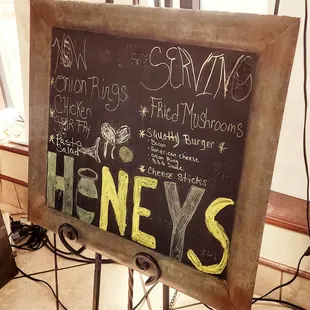 NOW SERVING
* Onion Rings
* Chicken
Stir Fry
* Pasta
Salad
* Fried Mushrooms
* Squatty Burger *
- Bacon
- American cheese
- onion Ring
BBQ
Sauce
* Cheese Sticks
HONEYS